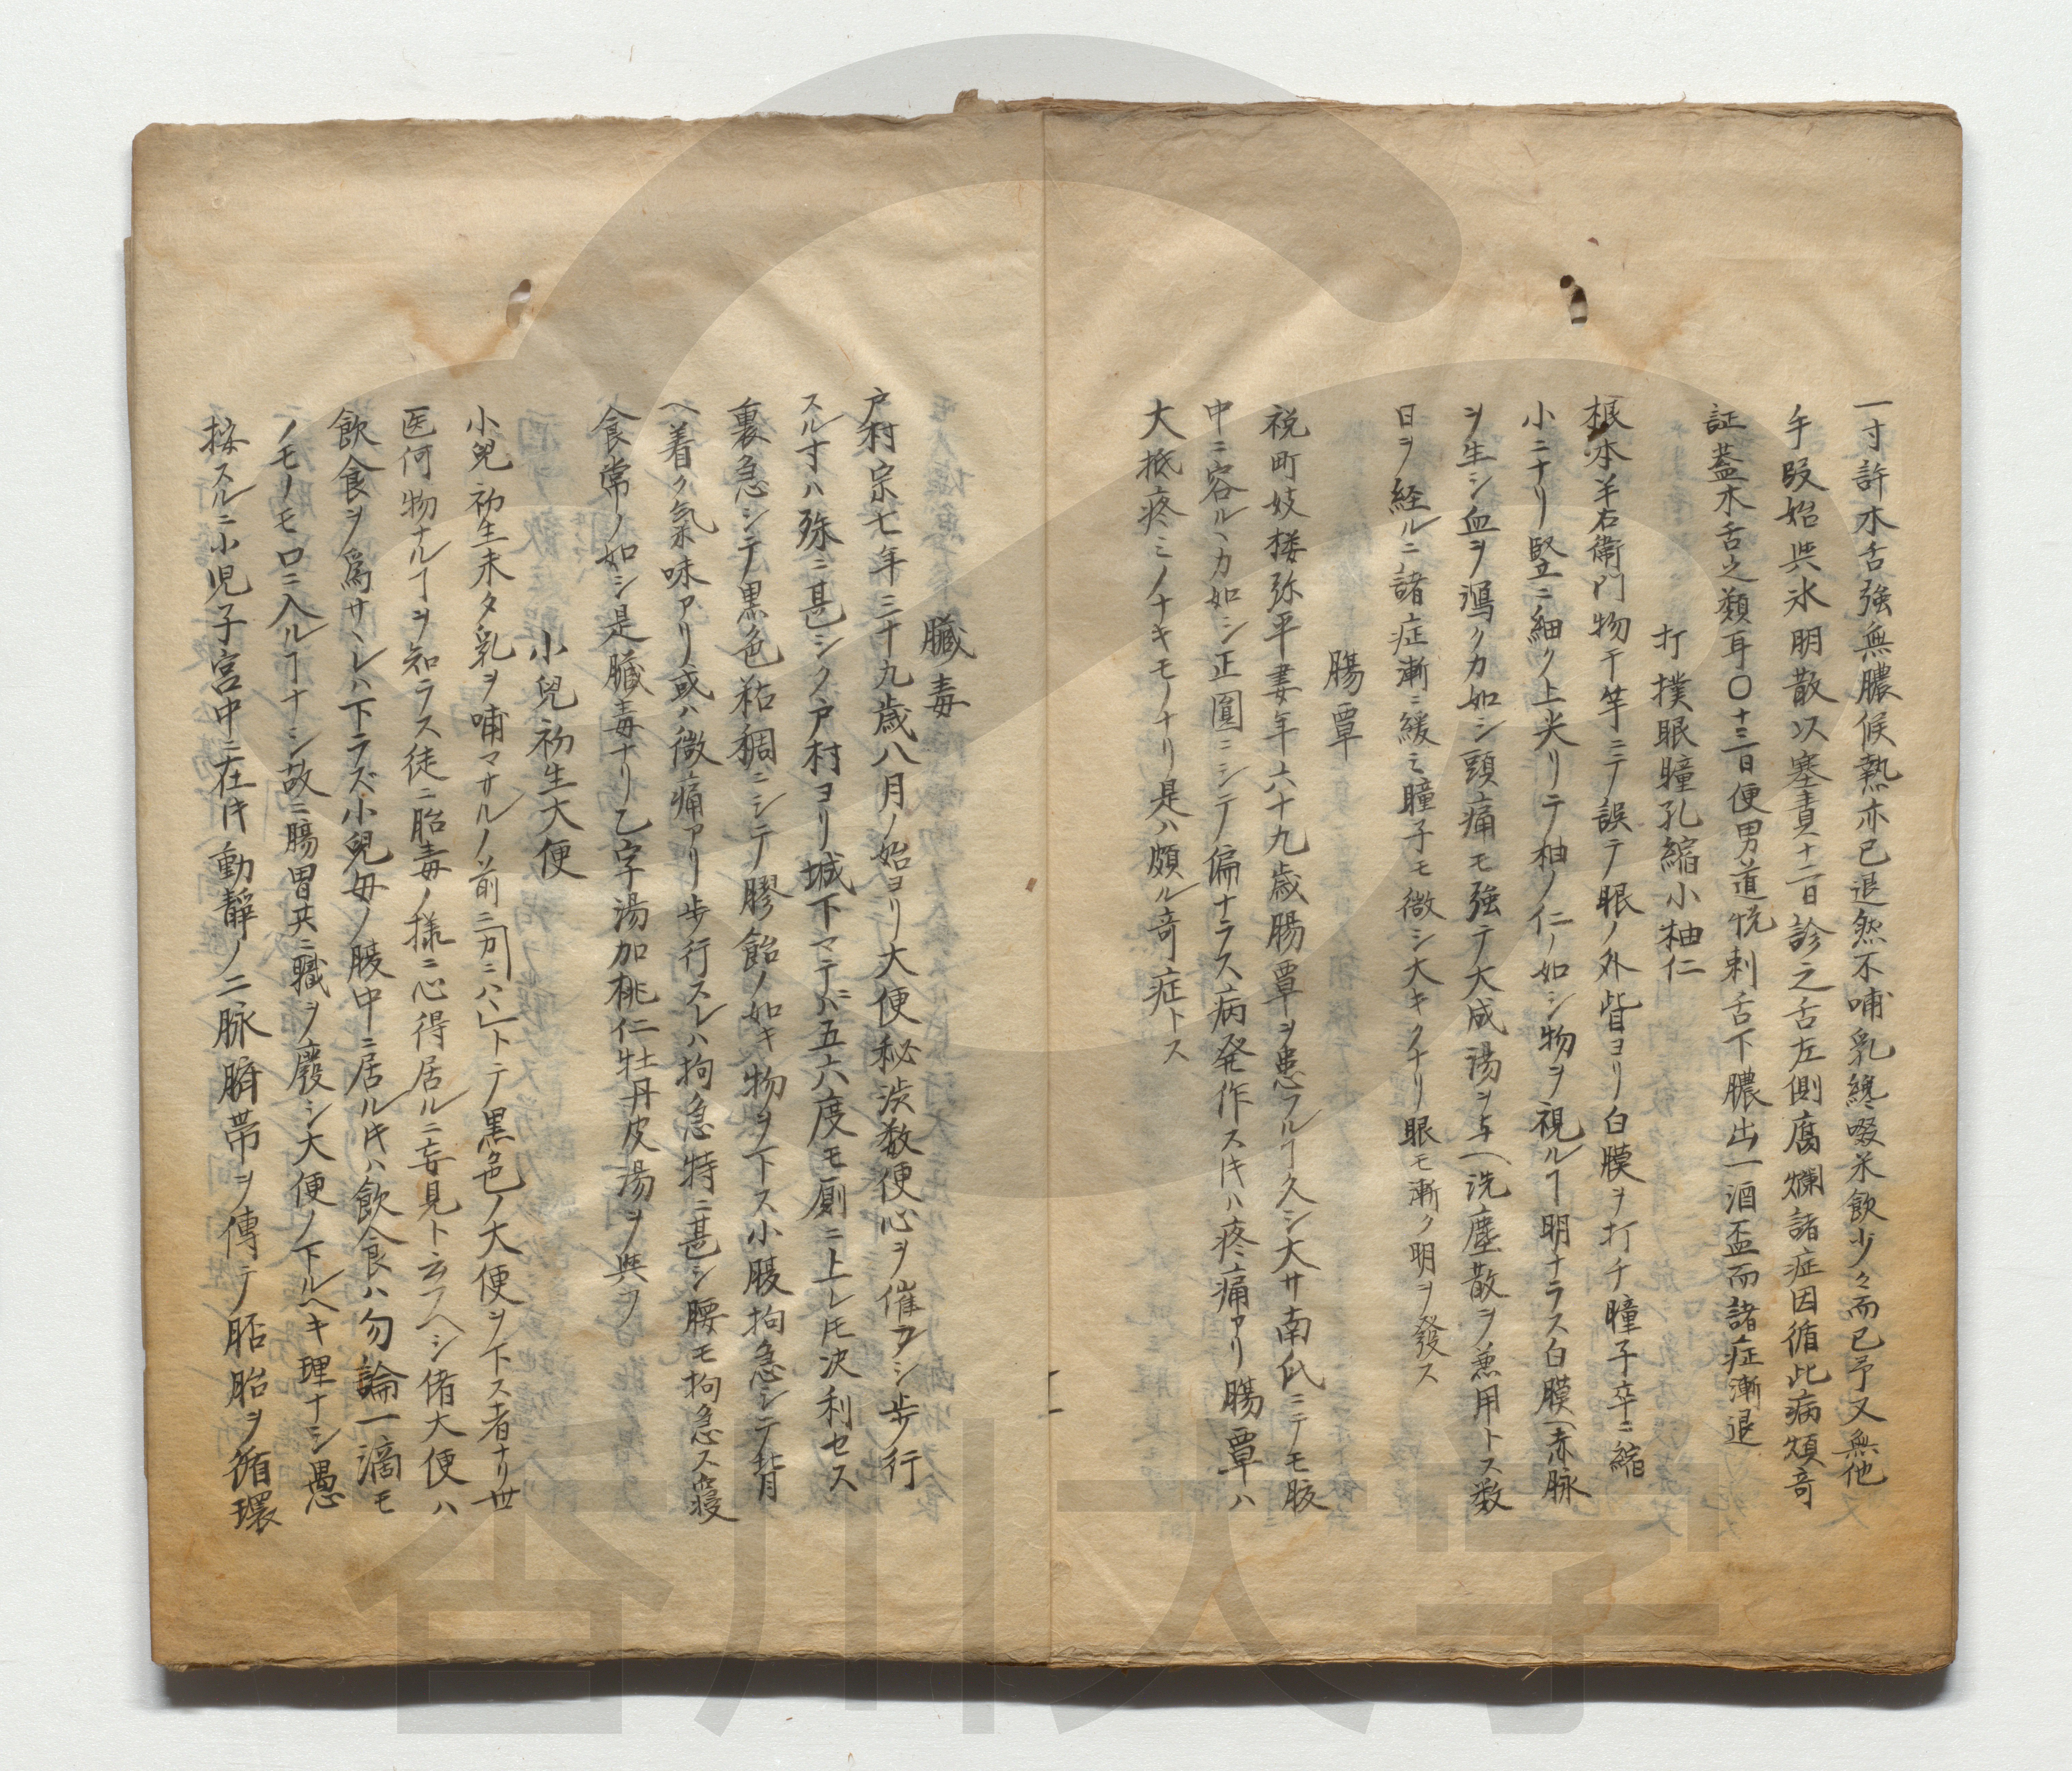 一寸許木舌強無膿候熱亦已退然不哺乳纔啜米飲少々而已予又無他
手段始與氷明散以塞責十二日診之舌左側腐爛諸症因循此病頗奇
証蓋木舌之類耳〇十三日便男道悦刺舌下膿出一酒盃而諸症漸退
打撲眼瞳孔縮小柚仁
根本羊右衛門物干竿ニテ誤テ眼ノ外眥ヨリ白膜ヲ打チ瞳子卒ニ縮
小ニナリ竪ニ細ク上尖リテ柚ノ仁ノ如シ物ヲ視ルヿ明ナラス白膜ヘ赤脉
ヲ生シ血ヲ瀉クカ如シ頭痛モ強テ大成湯ヲ与ヘ洗塵散ヲ兼用トス数
日ヲ経ルニ諸症漸ニ緩ミ瞳子モ微シ大キクナリ眼モ漸ク明ヲ發ス
腸覃
祝町妓楼弥平妻年六十九歳腸覃ヲ患フルヿ久シ大サ南瓜ニテモ腹
中ニ容ルヽカ如シ正圓ニシテ偏ナラス病発作スルキハ疼痛アリ腸覃ハ
大抵疼ミノナキモノナリ是ハ頗ル竒症トス
臓毒
戸村宗七年三十九歳八月ノ始ヨリ大便秘渋数便心ヲ催フシ歩行
スル寸ハ弥ニ甚シク戸村ヨリ城下マテニハ五六度モ厠ニ上レ𪜈決利セス
裏急シテ黒色粘稠ニシテ膠飴ノ如キ物ヲ下ス小腹拘急シテ背
ヘ着ク氣味アリ或ハ微痛アリ歩行スレハ拘急特ニ甚シ腰モ拘急ス寝
食常ノ如シ是臓毒ナリ乙字湯加桃仁牡丹皮湯ヲ與フ
小兒初生大便
小兒初生未タ乳ヲ哺マサルノ前ニカニハヽトテ黒色ノ大便ヲ下ス者ナリ世
医何物ナルヿヲ知ラス徒ニ胎毒ノ様ニ心得居ルニ妄見ト云フヘシ偖大便ハ
飲食ヲ爲サヽレハ下ラズ小兒母ノ腹中ニ居ルキハ飲食ハ勿論一滴モ
ノモノモ口ニ入ルヿナシ故ニ腸胃共ニ職ヲ廢シ大便ノ下ルヘキ理ナシ愚
按スルニ小児子宮中ニ在キ動靜ノ二脉臍帯ヲ傳テ胚胎ヲ循環